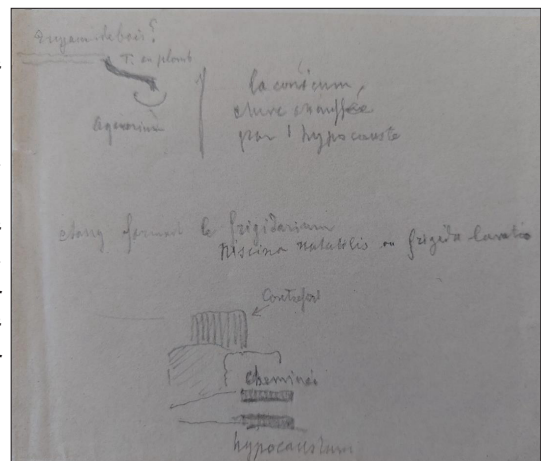 T. en plomb
laconicum,
chauffée
par l'hypocauste
étang formant le frigidarium
piscina natabilis ou frigida lavatio
Contrefort
cheminée
hypocaustum